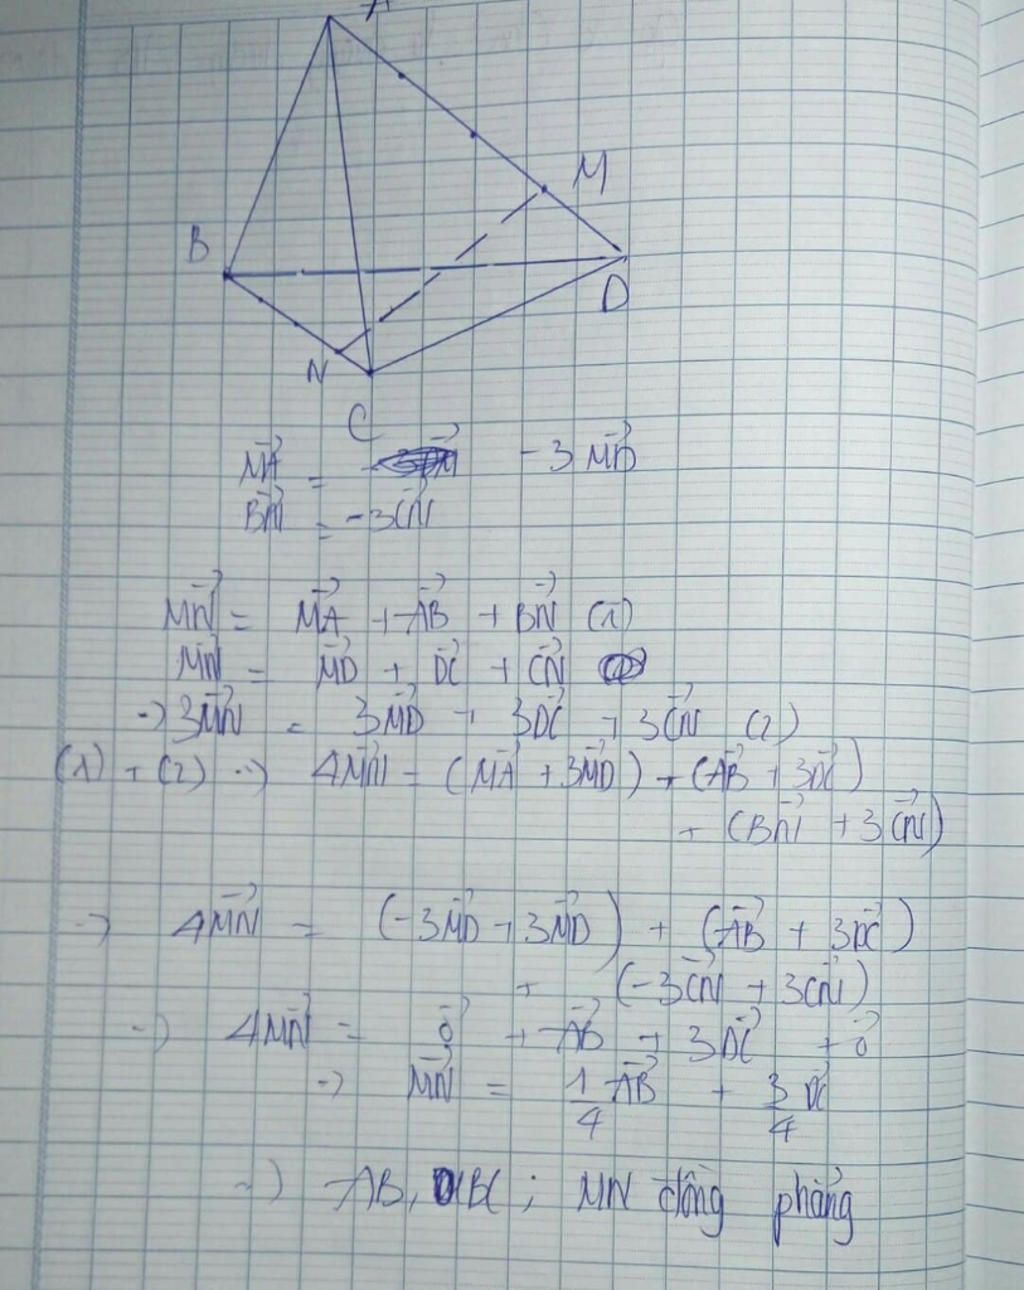 A
M
B
D
N
C
$\vec{MA} = -3\vec{MD}$
$\vec{BN} = -3\vec{CN}$
$\vec{MN} = \vec{MA} + \vec{AB} + \vec{BN}$ (1)
$\vec{MN} = \vec{MD} + \vec{DC} + \vec{CN}$
→ $3\vec{MN} = 3\vec{MD} + 3\vec{DC} + 3\vec{CN}$ (2)
(1) + (2) → $4\vec{MN} = (\vec{MA} + 3\vec{MD}) + (\vec{AB} + 3\vec{DC})$
$+ (\vec{BN} + 3\vec{CN})$
→ $4\vec{MN} = (-3\vec{MD} + 3\vec{MD}) + (\vec{AB} + 3\vec{DC})$
$+ (-3\vec{CN} + 3\vec{CN})$
→ $4\vec{MN} = \vec{0} + \vec{AB} + 3\vec{DC} + \vec{0}$
→ $\vec{MN} = \frac{1}{4}\vec{AB} + \frac{3}{4}\vec{DC}$
→ AB, ; MN đồng phẳng